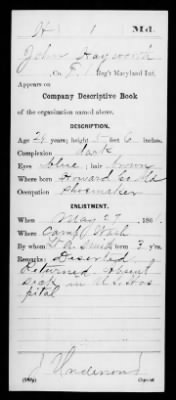 H 1 Md.
John Hayworth
, Co. E, 1 Reg't Maryland Inf.
Appears on
Company Descriptive Book
of the organization named above.
DESCRIPTION.
Age 29 years; height 5 feet 6 inches.
Complexion dark
Eyes blue; hair brown
Where born Howard Co Md
Occupation Shoemaker
ENLISTMENT.
When May 27, 1861.
Where Camp Wash
By whom term 3 y'rs.
Remarks: Deserted
Returned absent
sick in U.S. Hos
pital
J Anderson
Copyist.